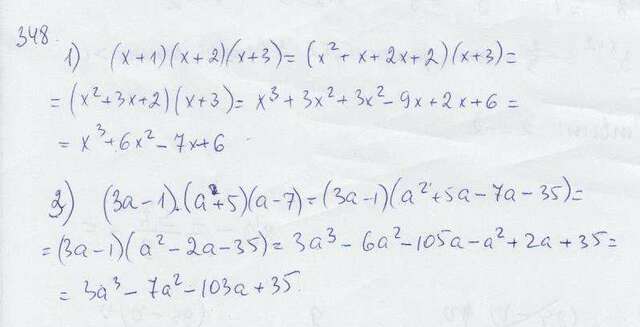 348.
1) (x+1)(x+2)(x+3)=(x²+x+2x+2)(x+3)=
=(x²+3x+2)(x+3)=x³+3x²+3x²-9x+2x+6=
=x³+6x²-7x+6
2) (3a-1).(a+5)(a-7)=(3a-1)(a²+5a-7a-35)=
=(3a-1)(a²-2a-35)=3a³-6a²-105a-a²+2a+35=
=3a³-7a²-103a+35.